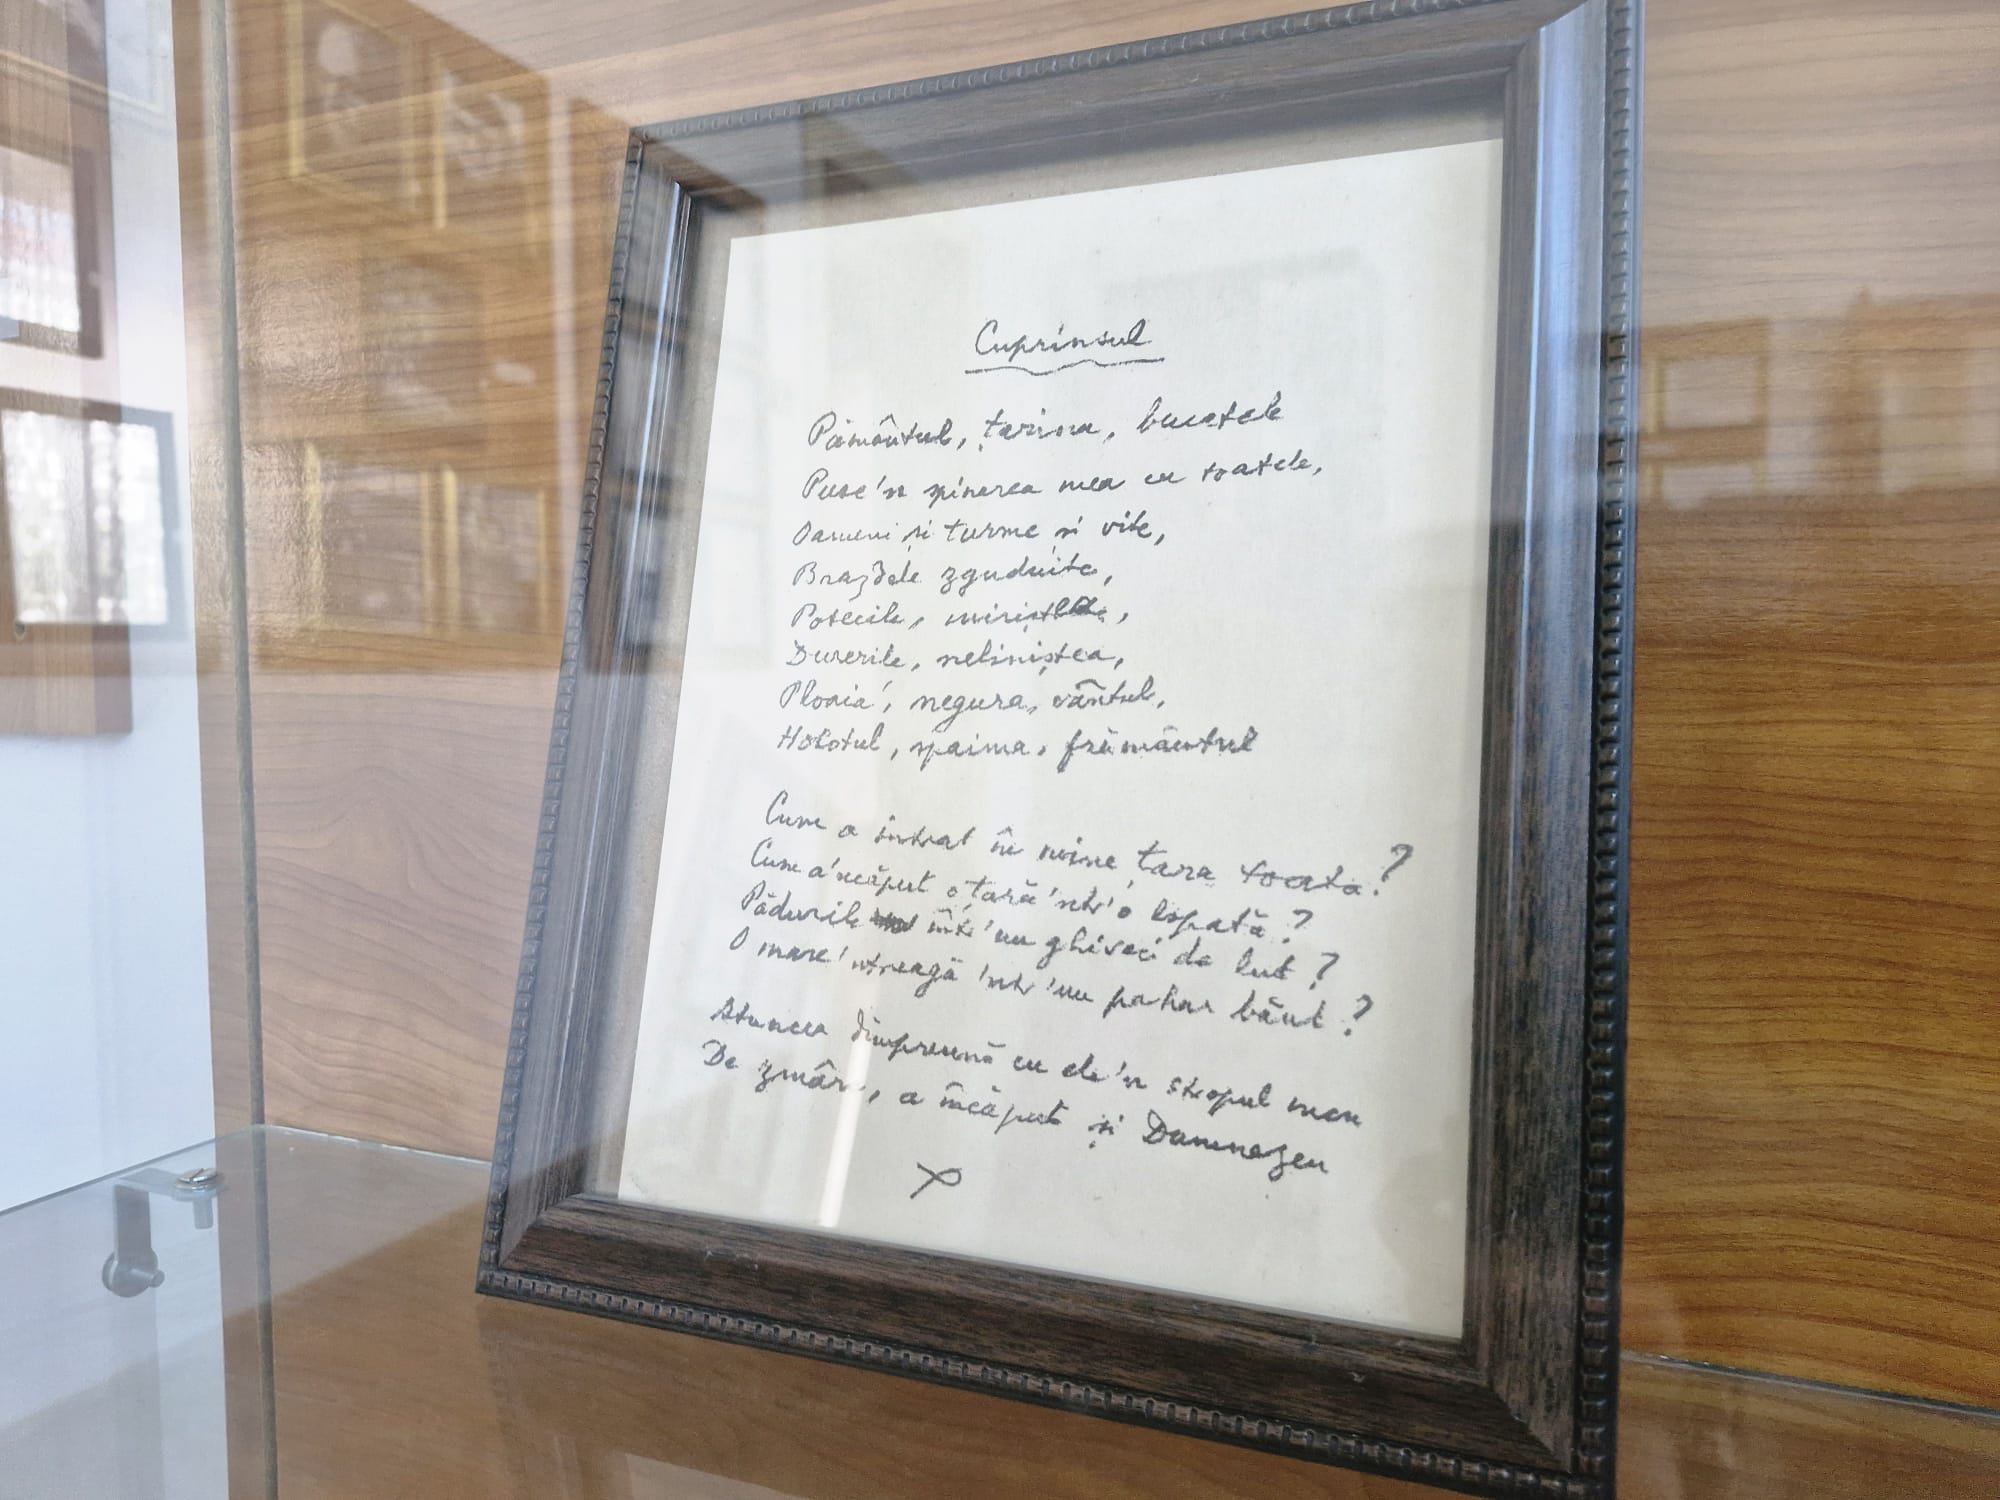 Cuprinsul
Pământul, țarina, bucatele
Puse'n spinarea mea cu toatele,
Oameni și turme și vite,
Brazdele zguduite,
Potecile, miriștea,
Durerile, neliniștea,
Ploaia, negura, vântul,
Hohotul, spaima, frământul
Cum a intrat în mine țara toata?
Cum a'ncăput o țară'ntr'o lopată?
Pădurile într'un ghiveci de lut?
O mare'ntreagă'ntr'un pahar băut?
Atuncea dimpreună cu ele'n stropul meu
De zmârc, a încăput și Dumnezeu